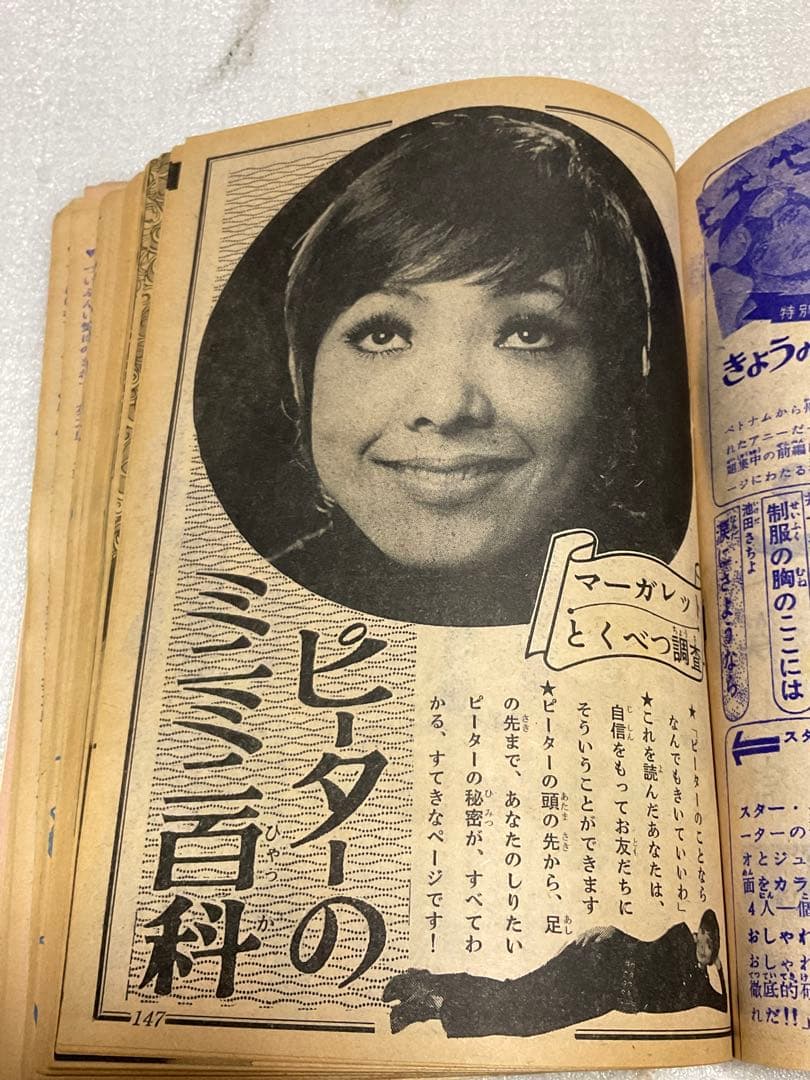 マーガレット
とくべつ調査
ピーターの
ミニミニ百科
ひゃっか
★「ピーターのことなら
なんでもきいていいわ」
★これを読んだあなたは、
自信をもってお友だちに
そういうことができます
★ピーターの頭の先から、足
の先まで、あなたのしりたい
ピーターの秘密が、すべてわ
かる、すてきなページです!
147
特別
きょうの
ベトナムから
れたアニーだ
題集中の前編
ージにわたる
制服の胸のここには
池田さちよ
涙よさようなら
スタ
スター・
ーターの
オとジュ
面をカラ
4人一個
おしゃれ
おしゃれ
徹底的研
れだ!!